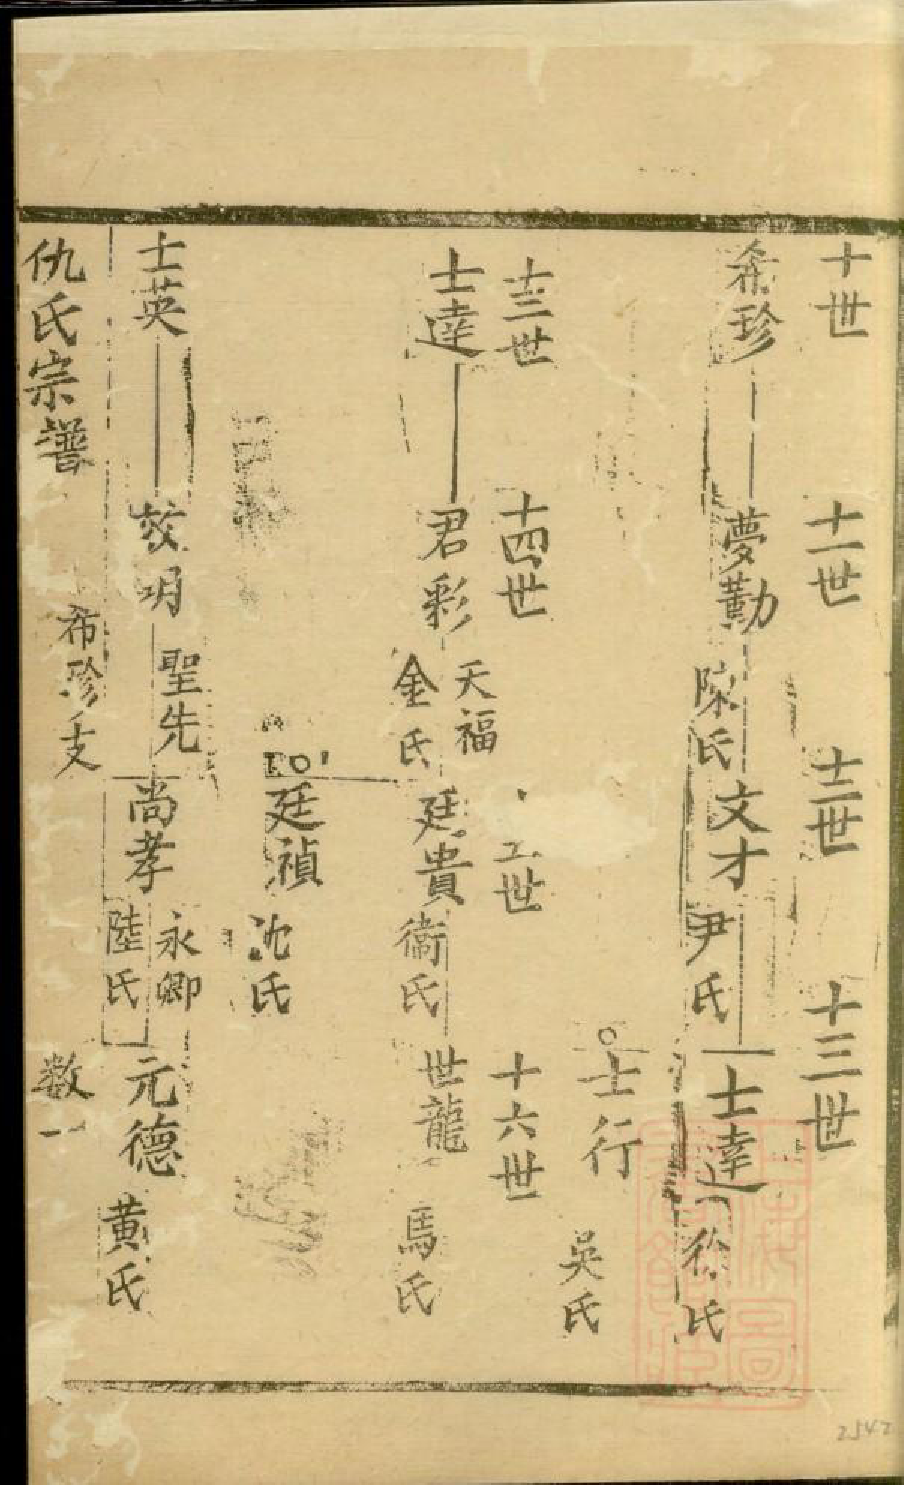 十世
十一世
十二世
十三世
希珍
夢勤
陳氏
文才
尹氏
士達
徐氏
士行
吳氏
十三世
十四世
世
十六世
士達
君彩
天福
金氏
廷貴
衞氏
世龍
馬氏
廷禎
沈氏
士英
明
聖先
尚孝
永卿
陸氏
元德
黃氏
仇氏宗譜
希珍支
数一
2542